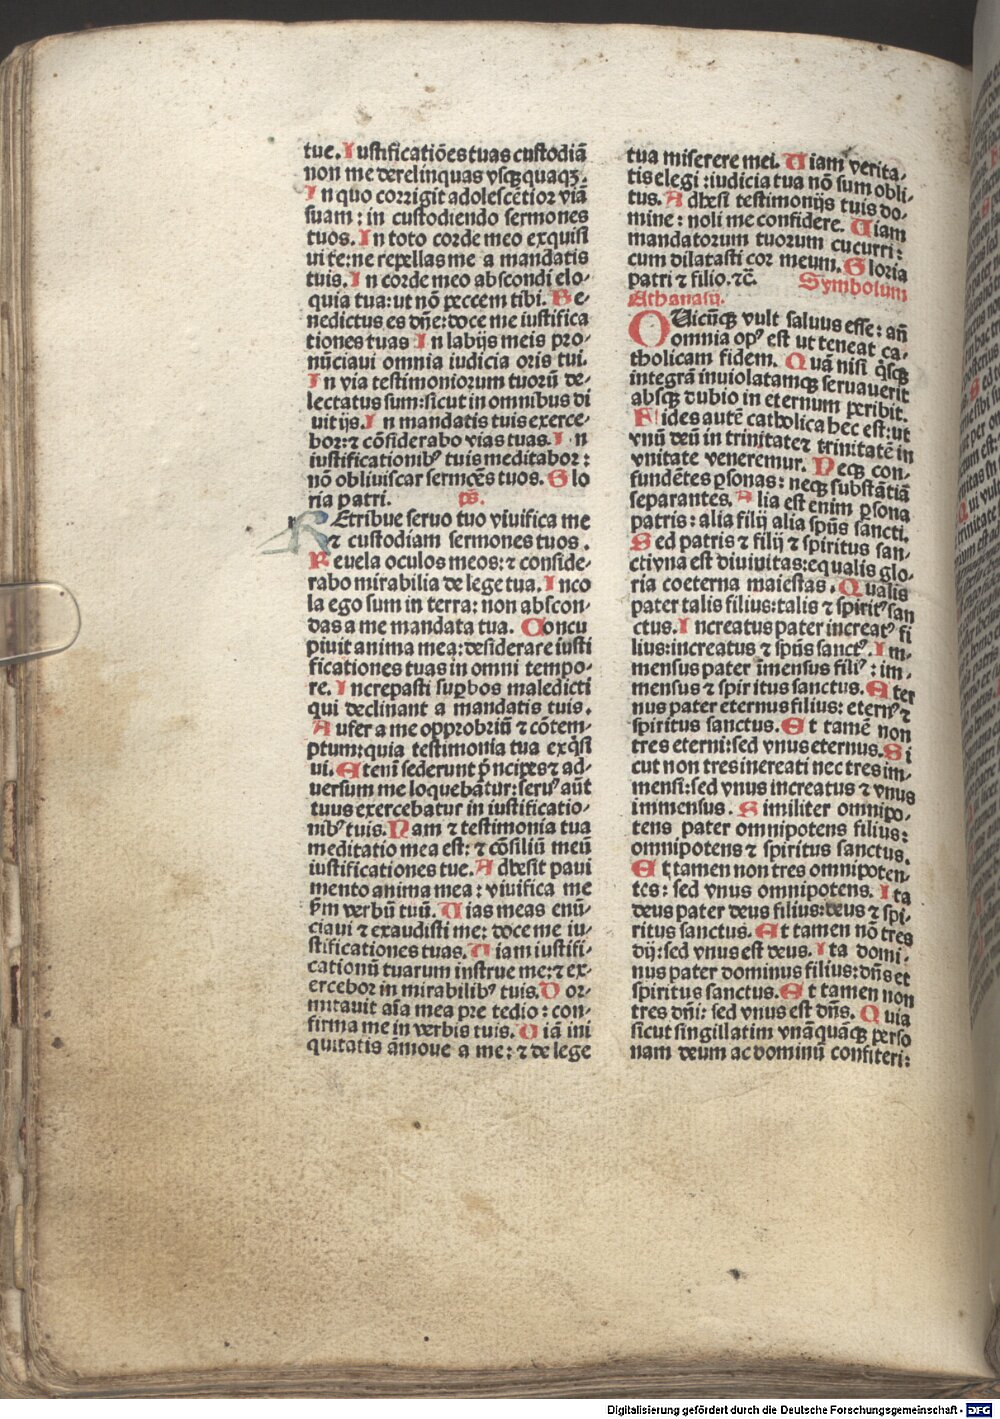 tue. Iustificatiões tuas custodiã
non me derelinquas vsqꝫquaqꝫ.
In quo corrigit adolescẽtior viã
suam : in custodiendo sermones
tuos. In toto corde meo exquisi
ui te: ne repellas me a mandatis
tuis. In corde meo abscondi elo-
quia tua: ut nõ peccem tibi. Be-
nedictus es dñe: doce me iustifica
tiones tuas In labijs meis pro-
nũciaui omnia iudicia oris tui.
In via testimoniorum tuorũ de-
lectatus sum: sicut in omnibus di
uitijs. In mandatis tuis exerce-
bor: ⁊ cõsiderabo vias tuas. In
iustificationibꝰ tuis meditabor :
nõ obliuiscar sermões tuos. Glo
ria patri. ps.
REtribue seruo tuo viuifica me
⁊ custodiam sermones tuos.
Reuela oculos meos: ⁊ conside-
rabo mirabilia de lege tua. Inco
la ego sum in terra: non abscon-
das a me mandata tua. Concu
piuit anima mea: desiderare iusti
ficationes tuas in omni tempo-
re. Increpasti suꝑbos maledicti
qui declinant a mandatis tuis.
Aufer a me opprobriũ ⁊ cõtem-
ptum: quia testimonia tua exq̃si
ui. Etenĩ sederunt p̃ncipes ⁊ ad-
uersum me loquebãtur: seruꝰ aũt
tuus exercebatur in iustificatio-
nibꝰ tuis. Nam ⁊ testimonia tua
meditatio mea est: ⁊ cõsiliũ meũ
iustificationes tue. Adhesit paui
mento anima mea : viuifica me
ẜm verbũ tuũ. Uias meas enũ-
ciaui ⁊ exaudisti me: doce me iu-
stificationes tuas. Uiam iustifi-
cationũ tuarum instrue me: ⁊ ex-
ercebor in mirabilibꝰ tuis. Dor-
mitauit aĩa mea pre tedio : con-
firma me in verbis tuis. Uiã ini
quitatis ãmoue a me: ⁊ de lege
tua miserere mei. Uiam verita-
tis elegi : iudicia tua nõ sum obli-
tus. Adhesi testimonijs tuis do-
mine : noli me confidere. Uiam
mandatorum tuorum cucurri:
cum dilatasti cor meum. Gloria
patri ⁊ filio. ⁊c̃. Symbolum
Athanasij.
QUicũqꝫ vult saluus esse: añ
omnia opꝰ est ut teneat ca-
tholicam fidem. Quã nisi q̃sqꝫ
integrã inuiolatamqꝫ seruauerit
absqꝫ dubio in eternum peribit.
Fides autẽ catholica hec est: ut
vnũ deũ in trinitate ⁊ trinitatẽ in
vnitate veneremur. Neqꝫ con-
fundẽtes ꝑsonas: neqꝫ substãtiã
separantes. Alia est enim ꝑsona
patris: alia filij alia sp̃us sancti.
Sed patris ⁊ filij ⁊ spiritus san-
cti vna est diuinitas: equalis glo-
ria coeterna maiestas. Qualis
pater talis filius: talis ⁊ spiritꝰ san
ctus. Increatus pater increatꝰ fi
lius: increatus ⁊ sp̃us sanctꝰ. Im-
mensus pater ĩmensus filiꝰ : im-
mensus ⁊ spiritus sanctus. Eter
nus pater eternus filius: eternꝰ ⁊
spiritus sanctus. Et tamẽ non
tres eterni: sed vnus eternus. Si
cut non tres increati nec tres im-
mensi: sed vnus increatus ⁊ vnus
immensus. Similiter omnipo-
tens pater omnipotens filius:
omnipotens ⁊ spiritus sanctus.
Et tamen non tres omnipoten-
tes: sed vnus omnipotens. Ita
deus pater deus filius: deus ⁊ spi-
ritus sanctus. Et tamen nõ tres
dij: sed vnus est deus. Ita domi-
nus pater dominus filius: dñs et
spiritus sanctus. Et tamen non
tres dñi: sed vnus est dñs. Quia
sicut singillatim vnãquãqꝫ perso
nam deum ac dominũ confiteri:
Digitalisierung gefördert durch die Deutsche Forschungsgemeinschaft - DFG